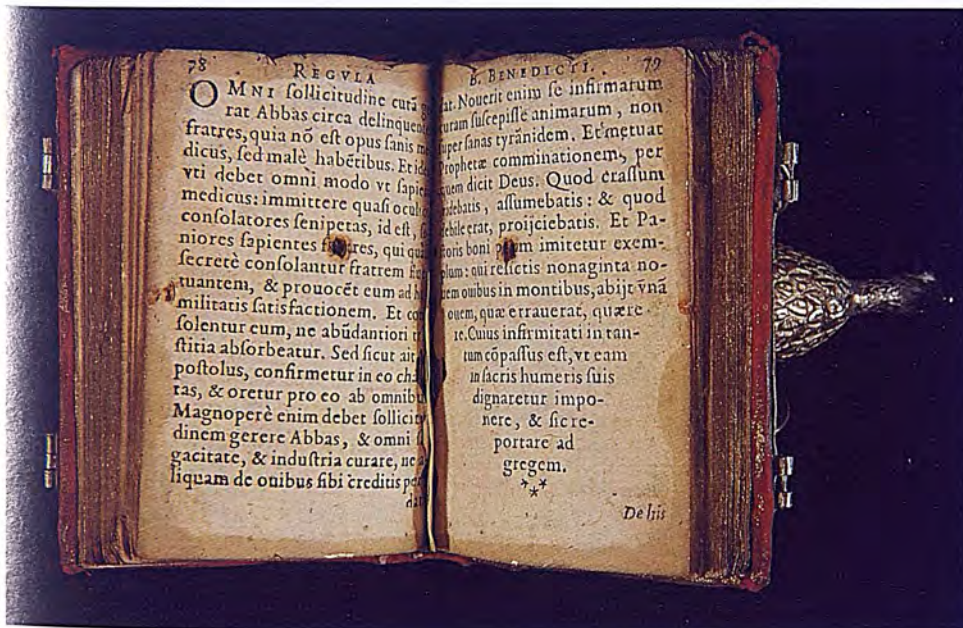 78 REGVLA
OMNI sollicitudine curā
rat Abbas circa delinquent
fratres, quia nō est opus sanis me
dicus, sed malè habētibus. Et ide
vti debet omni modo vt sapie
medicus: immittere quasi occul
consolatores senipetas, id est, s
niores sapientes res, qui qu
secretè consolantur fratrem
tuantem, & prouocēt eum ad h
militatis satisfactionem. Et co
solentur eum, ne abūdantiori
stitia absorbeatur. Sed sicut ait
postolus, confirmetur in eo cha
tas, & oretur pro eo ab omnibu
Magnoperè enim debet sollicit
dinem gerere Abbas, & omni
gacitate, & industria curare, ne a
liquam de ouibus sibi creditis per
dat
B. BENEDICTI. 79
dat. Nouerit enim se infirmarum
curam suscepisse animarum, non
super sanas tyrānidem. Et metuat
Prophetæ comminationem, per
quem dicit Deus. Quod crassum
videbatis, assumebatis: & quod
debile erat, proijciebatis. Et Pa-
storis boni imitetur exem-
plum: qui relictis nonaginta no-
uem ouibus in montibus, abijt vnā
ouem, quæ errauerat, quære
re. Cuius infirmitati in tan-
tum cōpassus est, vt eam
in sacris humeris suis
dignaretur impo-
nere, & sic re-
portare ad
gregem.
***
De his